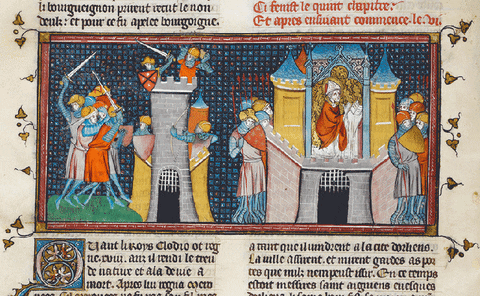 li bourgueignon le non
et pour ce fu apelee bourgoigne.
Ci fenist le quint chapitre:
Et apres ensuiant commence le vi.
Quant li roys Clodio ot reg
ne xviii. anz il rendi le treu
de nature et ala de vie a
mort. Apres lui regna
a tant que il vindrent a la cite dorliens.
La ville assirent, et mirent gardes as por
tes que nulz nen peust issir. En ce temps
estoit messires saint aignens evesques